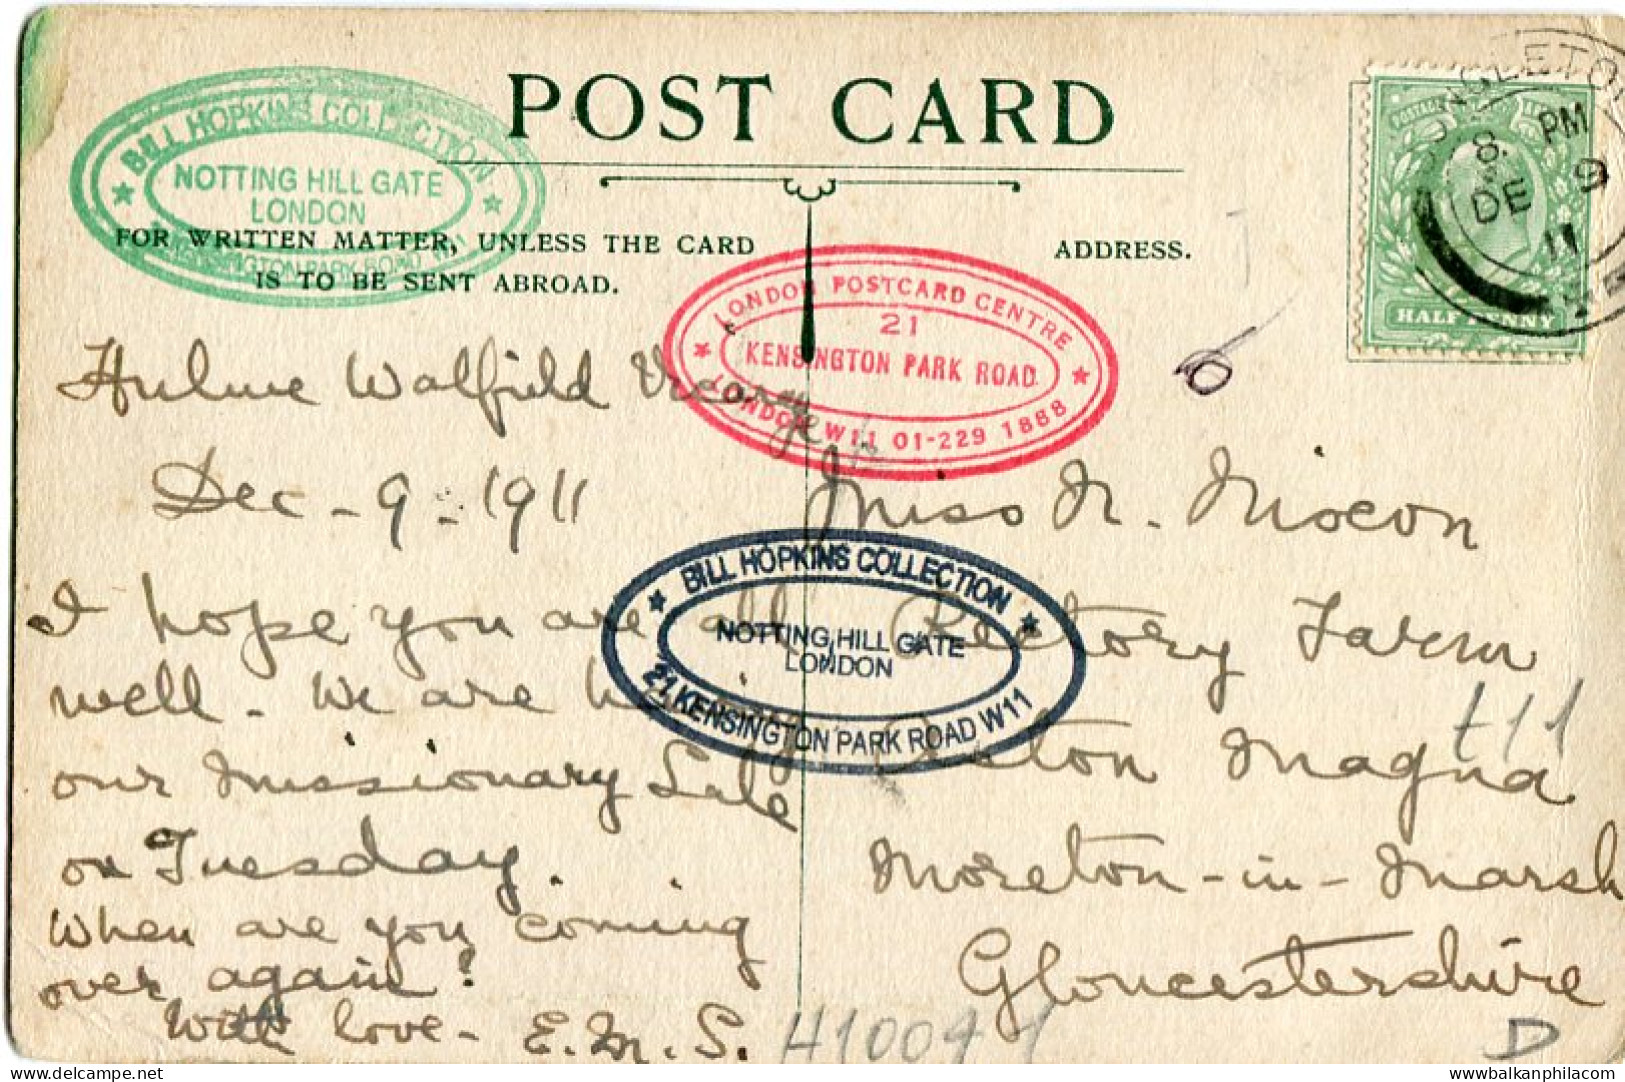 POST CARD
BILL HOPKINS COLLECTION
NOTTING HILL GATE
LONDON
KENSINGTON PARK ROAD
FOR WRITTEN MATTER, UNLESS THE CARD
IS TO BE SENT ABROAD.
ADDRESS.
LONDON POSTCARD CENTRE
21
KENSINGTON PARK ROAD
LONDON W11 01-229 1888
8. PM
DE 9
11
HALF PENNY
Hulme Walfield Vicarage
Dec - 9 - 1911
I hope you are all
well - We are having
our Missionary Sale
on Tuesday.
When are you coming
over again?
With love - E.M.S.
Miss N. Nixon
Rectory Farm
Aston Magna
Moreton-in-Marsh
Gloucestershire
BILL HOPKINS COLLECTION
NOTTING HILL GATE
LONDON
21 KENSINGTON PARK ROAD W11
t11
H10091
D
www.balkanphila.com